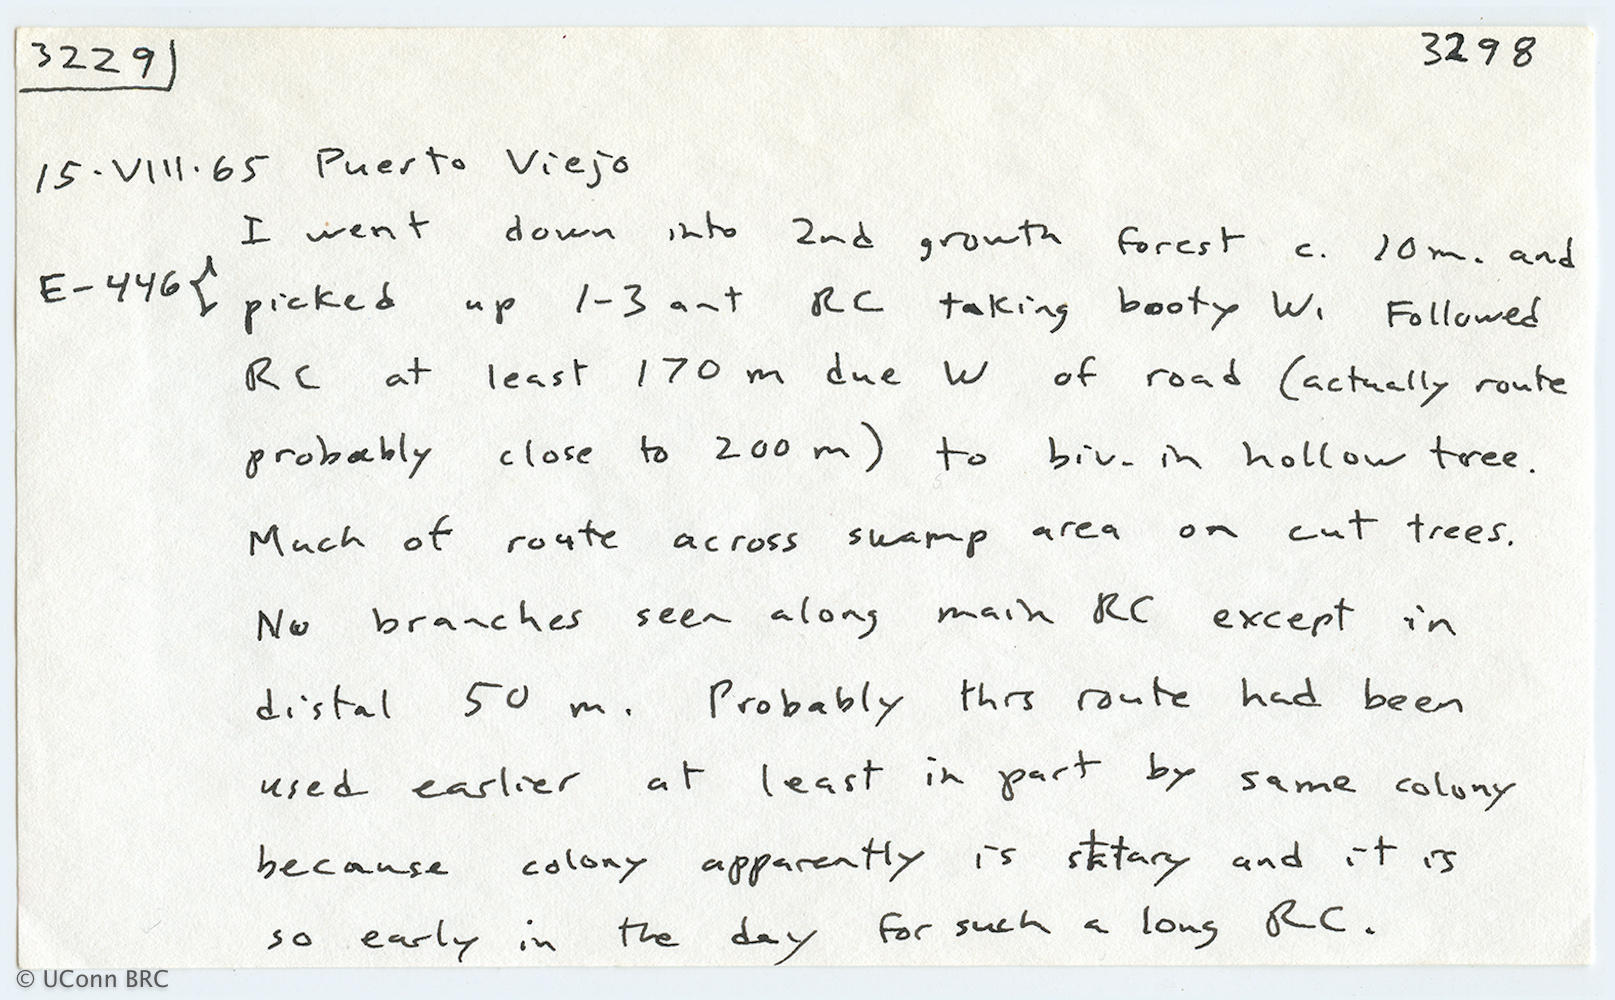 3229
3298
15·VIII·65 Puerto Viejo
I went down into 2nd growth forest c. 10 m. and
E-446{ picked up 1-3 ant RC taking booty W. Followed
RC at least 170 m due W of road (actually route
probably close to 200 m) to biv. in hollow tree.
Much of route across swamp area on cut trees.
No branches seen along main RC except in
distal 50 m. Probably this route had been
used earlier at least in part by same colony
because colony apparently is statary and it is
so early in the day for such a long RC.
© UConn BRC